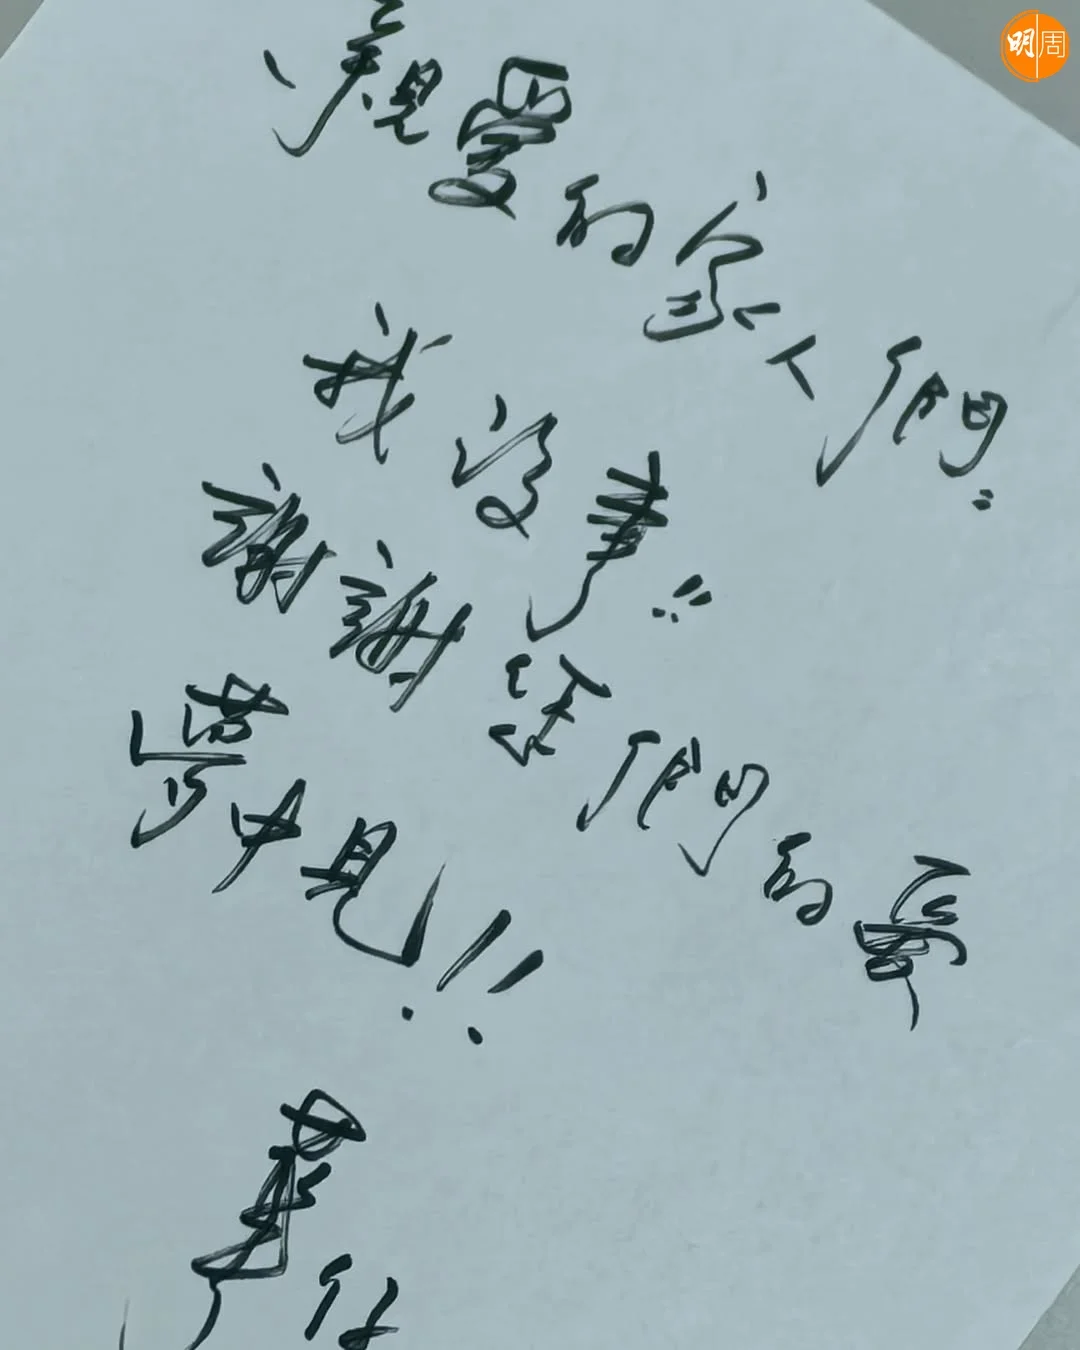 明周
親愛的家人們：
我沒事！！
謝謝您們的愛
夢中見！！
華仔